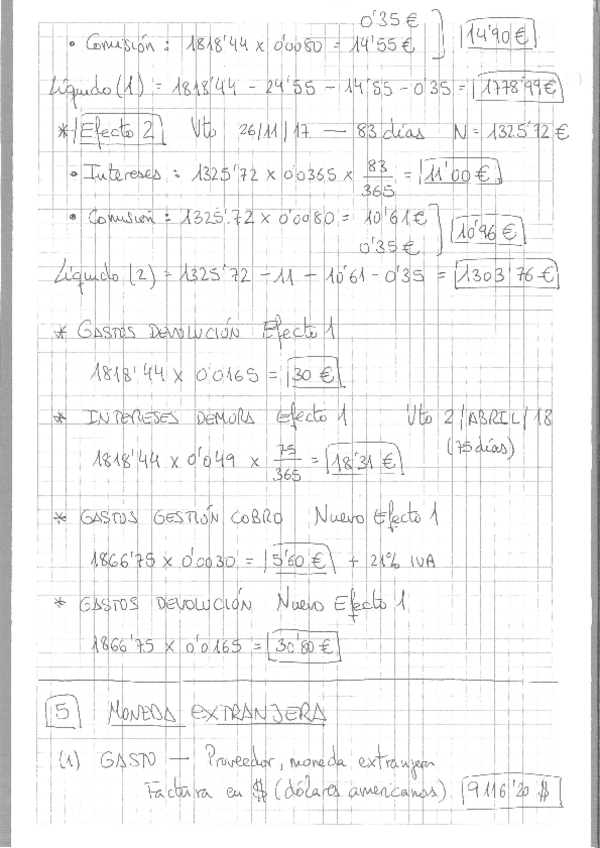 0'35 €
• Comisión : 1818'44 x 0'0080 = 14'55 € 14'90 €
Líquido (1) = 1818'44 - 24'55 - 14'55 - 0'35 = 1778'99 €
* Efecto 2 Vto 26/11/17 — 83 días N = 1325'72 €
• Intereses : 1325'72 x 0'0365 x 83/365 = 11'00 €
• Comisión : 1325'72 x 0'0080 = 10'61 € 10'96 €
0'35 €
Líquido (2) = 1325'72 - 11 - 10'61 - 0'35 = 1303'76 €
* GASTOS DEVOLUCIÓN Efecto 1
1818'44 x 0'0165 = 30 €
* INTERESES DEMORA Efecto 1 Vto 2/ABRIL/18
(75 días)
1818'44 x 0'049 x 75/365 = 18'31 €
* GASTOS GESTIÓN COBRO Nuevo Efecto 1
1866'75 x 0'0030 = 5'60 € + 21% IVA
* GASTOS DEVOLUCIÓN Nuevo Efecto 1
1866'75 x 0'0165 = 30'80 €
5 MONEDA EXTRANJERA
(1) GASTO — Proveedor, moneda extranjera
Factura en $ (dólares americanos) 9116'20 $